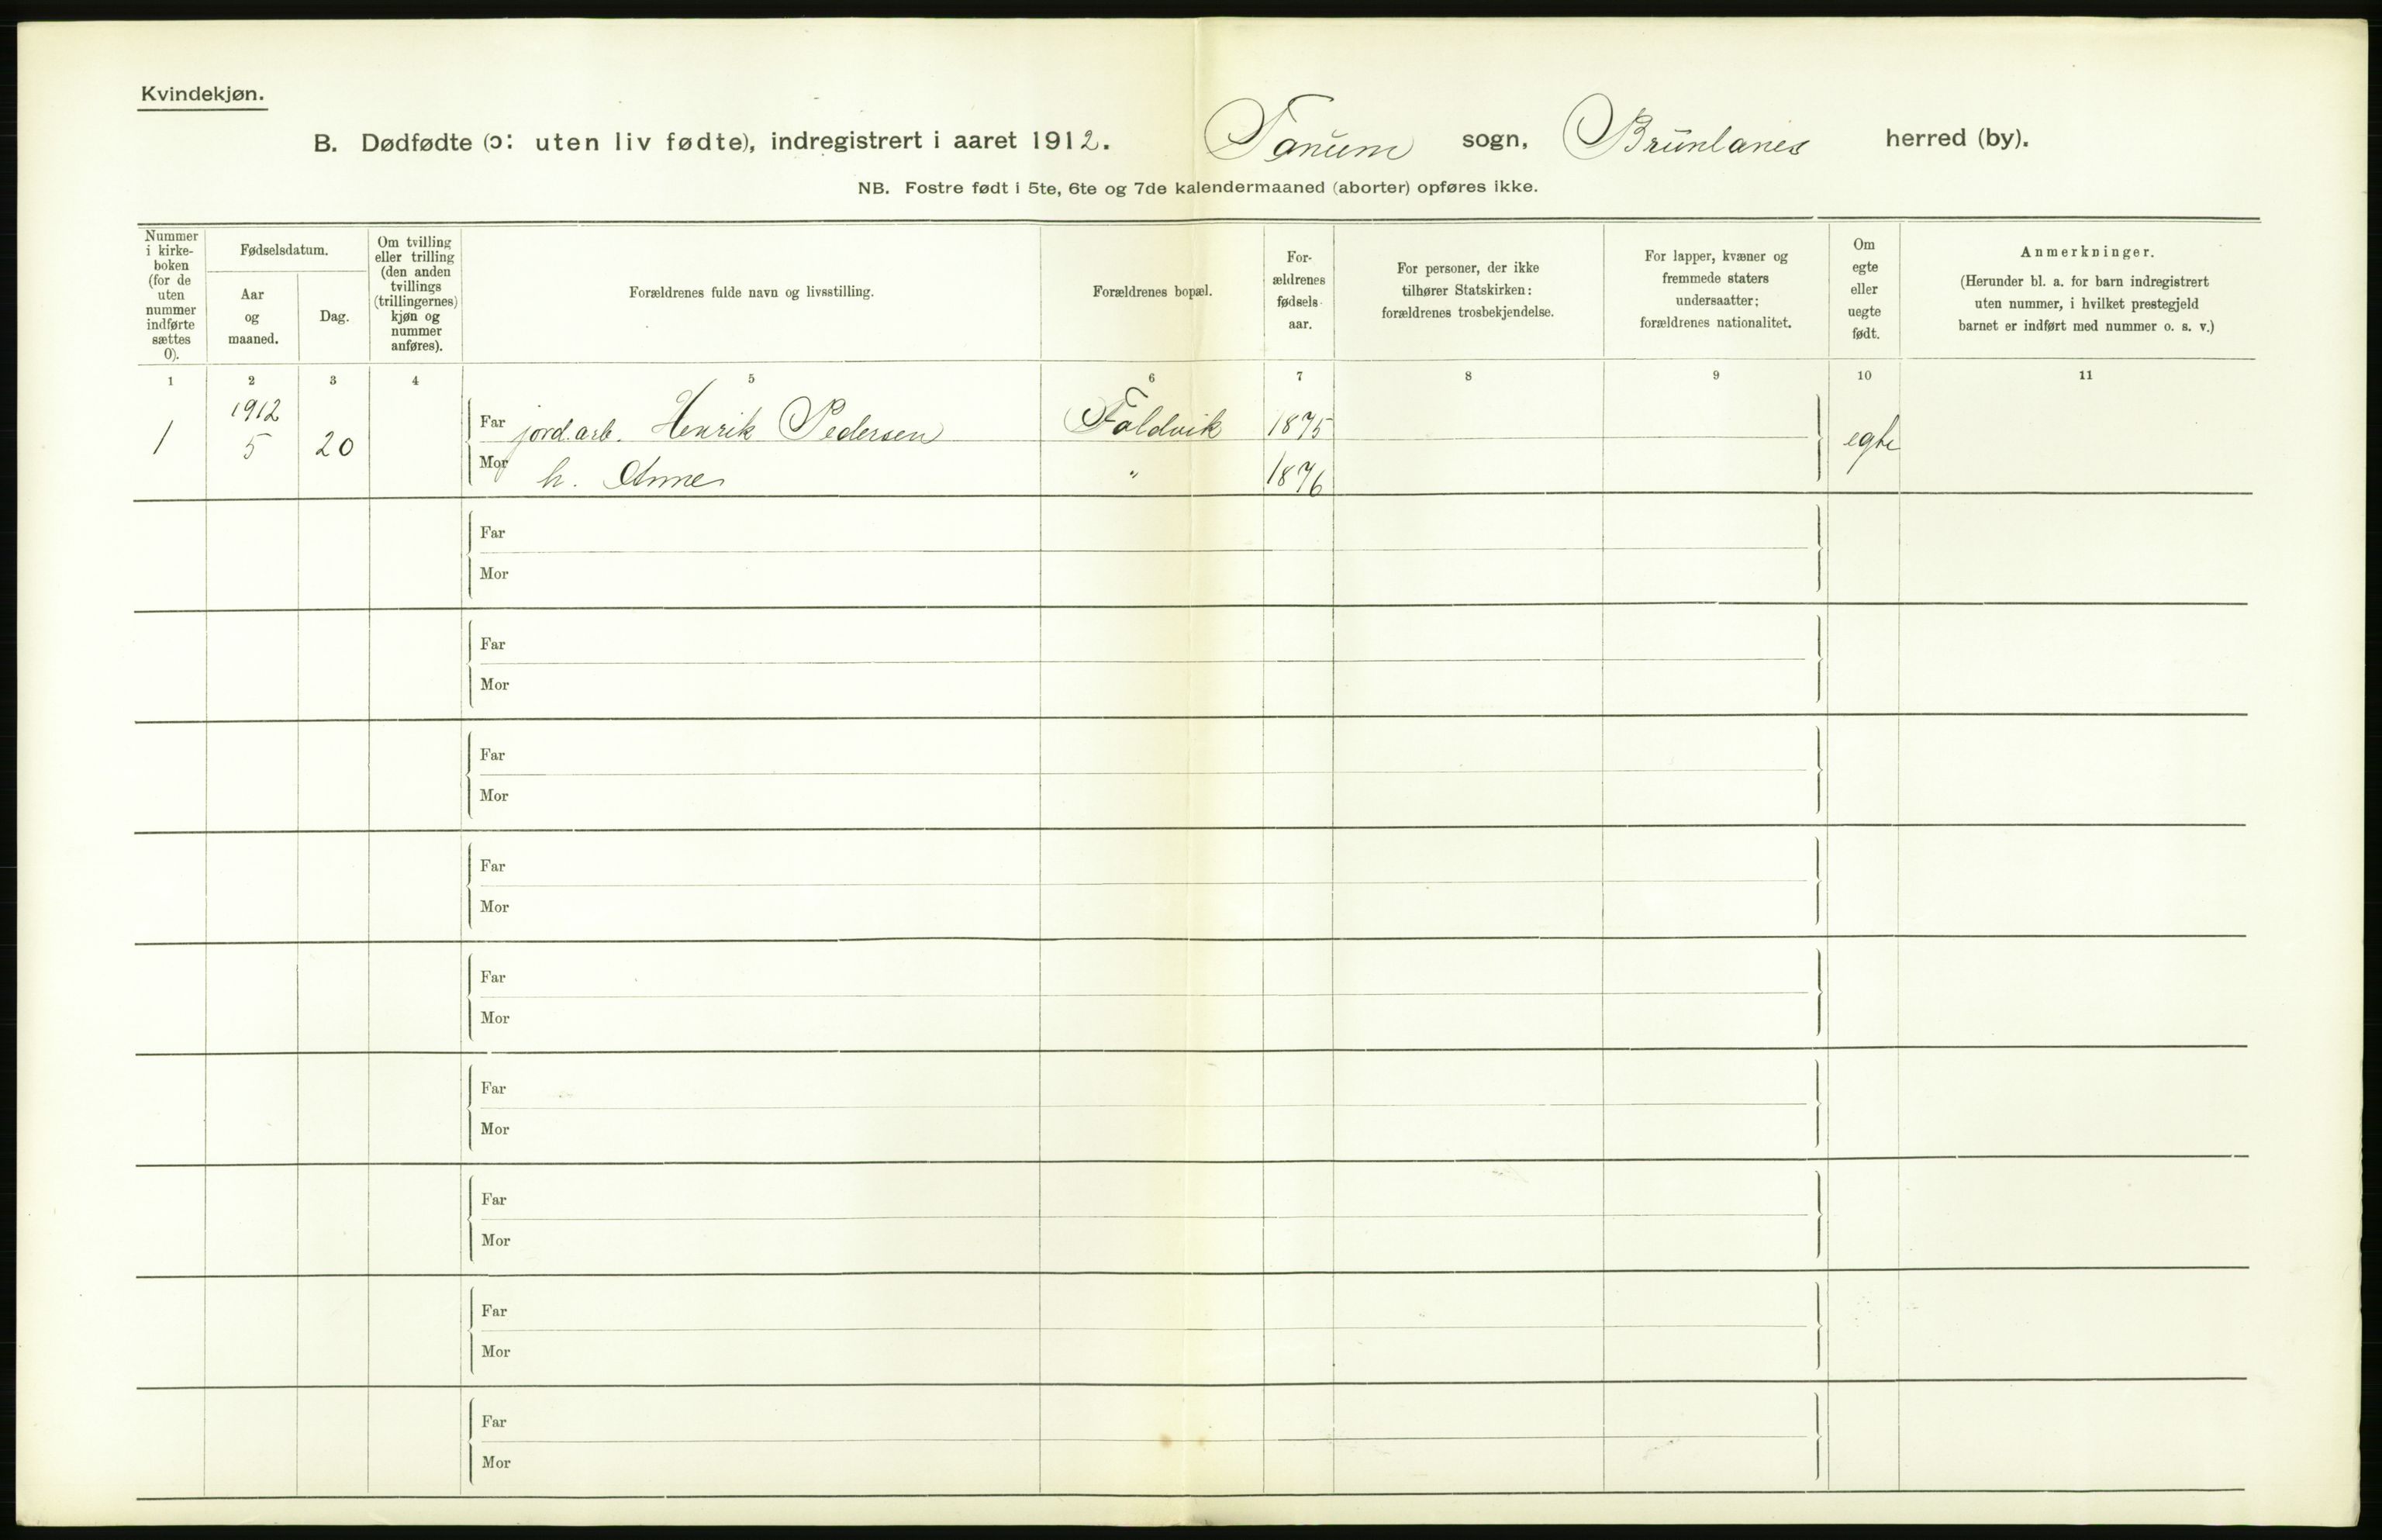 Kvindekjøn.
B. Dødfødte (ɔ: uten liv fødte), indregistrert i aaret 1912. Tanum sogn, Brunlanes herred (by).
NB. Fostre født i 5te, 6te og 7de kalendermaaned (aborter) opføres ikke.
Nummer
i kirke-
boken
(for de
uten
nummer
indførte
sættes
0).
Fødselsdatum.
Aar
og
maaned.
Dag.
Om tvilling
eller trilling
(den anden
tvillings
(trillingernes)
kjøn og
nummer
anføres).
Forældrenes fulde navn og livsstilling.
Forældrenes bopæl.
For-
ældrenes
fødsels-
aar.
For personer, der ikke
tilhører Statskirken:
forældrenes trosbekjendelse.
For lapper, kvæner og
fremmede staters
undersaatter;
forældrenes nationalitet.
Om
egte
eller
uegte
født.
Anmerkninger.
(Herunder bl. a. for barn indregistrert
uten nummer, i hvilket prestegjeld
barnet er indført med nummer o. s. v.)
1 2 3 4 5 6 7 8 9 10 11
1912
1 5 20
Far jord.arb. Henrik Pedersen Foldvik 1875
egte
Mor h. Anne " 1876
Far
Mor
Far
Mor
Far
Mor
Far
Mor
Far
Mor
Far
Mor
Far
Mor
Far
Mor
Far
Mor